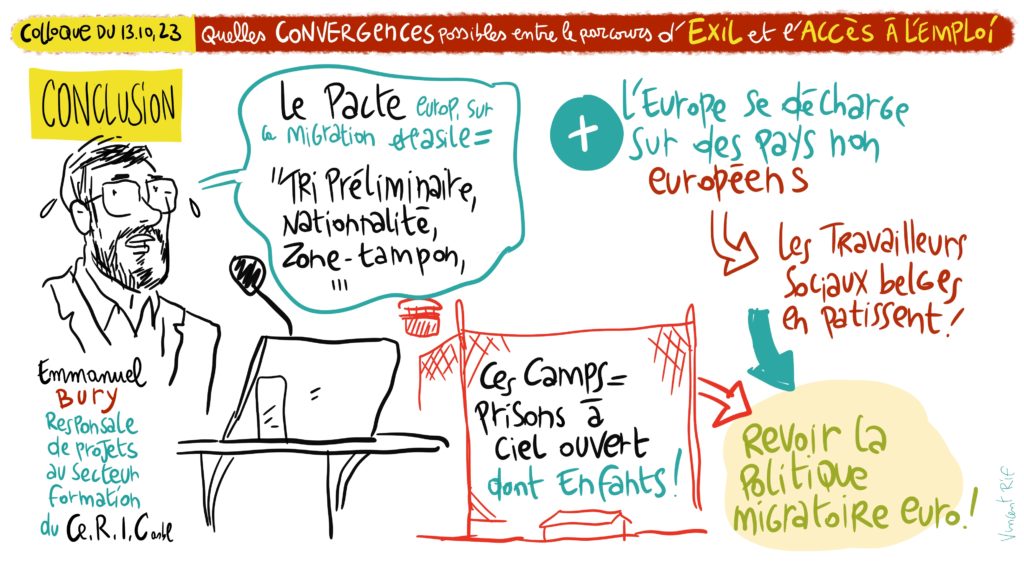 COLLOQUE DU 13.10.23 QUELLES CONVERGENCES possibles entre le parcours d'EXIL et l'ACCÈS À L'EMPLOI
CONCLUSION
Le Pacte europ. sur
la migration & asile =
"TRI PRÉLIMINAIRE,
NATIONNALITÉ,
ZONE-TAMPON,
"'
Emmanuel
BURY
Responsale
de projets
au secteur
formation
du Ce.R.I.C asbl
+
L'EUROPE se décharge
sur des pays non
européens
Les TRAVAILLEURS
Sociaux belges
en PATISSENT!
Ces CAMPS=
PRISONS à
ciel ouvert
dont ENFANTS!
REVOIR la
POLITIQUE
MIGRATOIRE EURO!
Vincent Rif